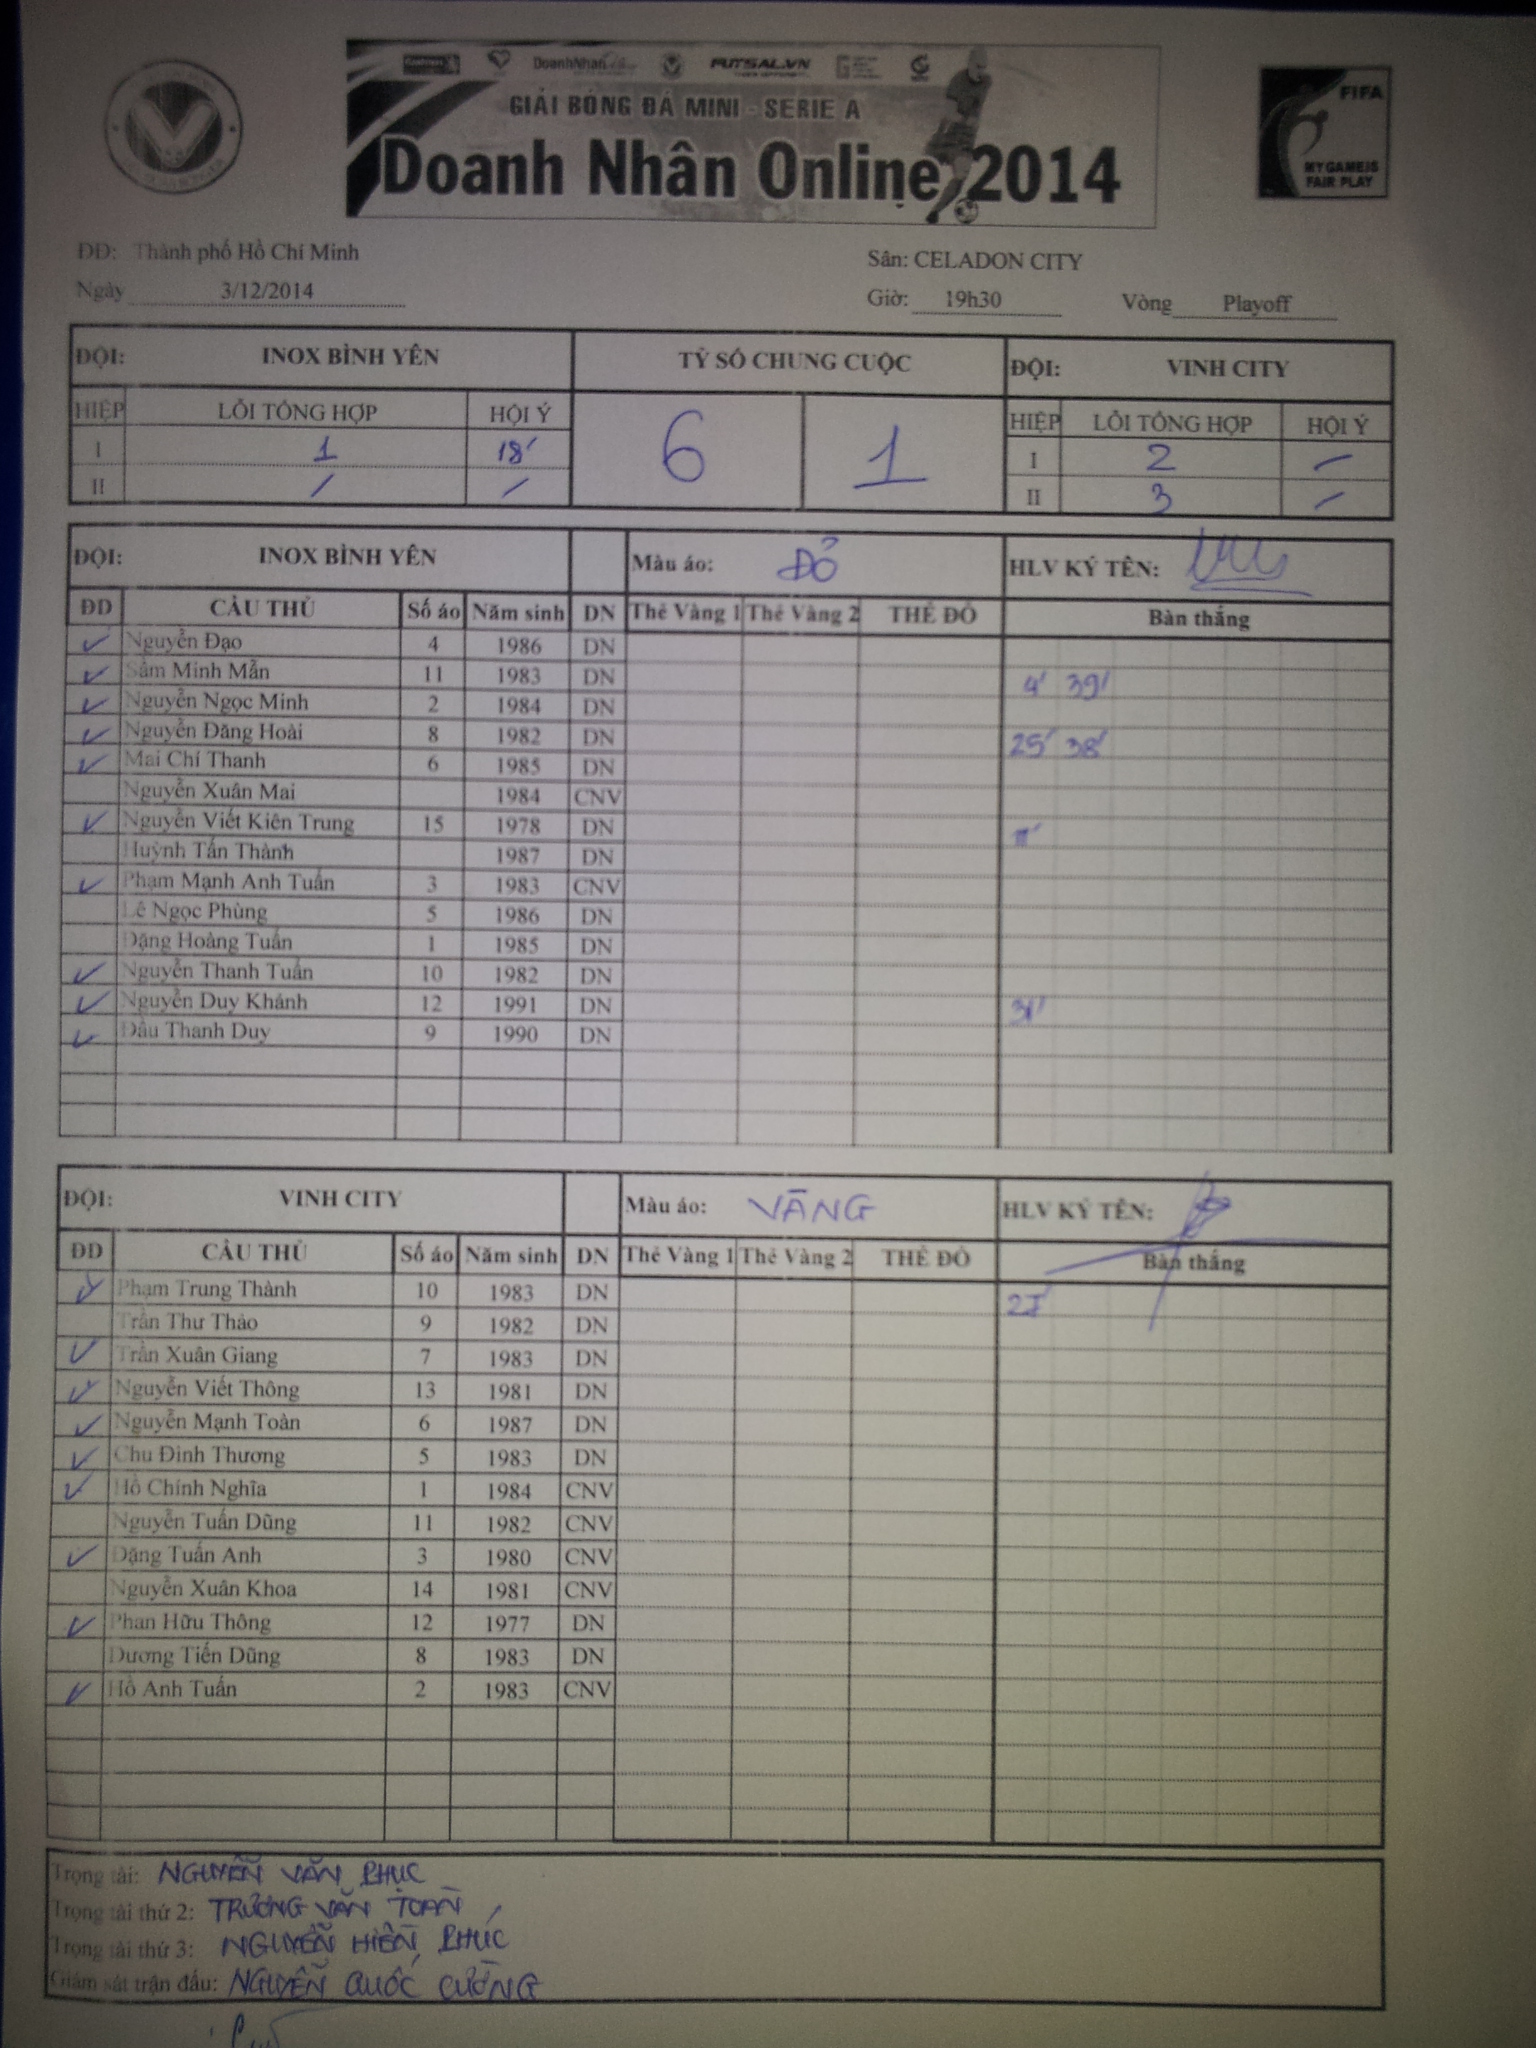 DoanhNhan
FUTSAL.VN
GIẢI BÓNG ĐÁ MINI - SERIE A
Doanh Nhân Online 2014
FIFA
MY GAME IS
FAIR PLAY
ĐD: Thành phố Hồ Chí Minh Sân: CELADON CITY
Ngày 3/12/2014 Giờ: 19h30 Vòng Playoff
ĐỘI: INOX BÌNH YÊN TỶ SỐ CHUNG CUỘC ĐỘI: VINH CITY
HIỆP LỖI TỔNG HỢP HỘI Ý 6 1 HIỆP LỖI TỔNG HỢP HỘI Ý
I 1 18' I 2 -
II / / II 3 -
ĐỘI: INOX BÌNH YÊN Màu áo: ĐỎ HLV KÝ TÊN:
ĐD CẦU THỦ Số áo Năm sinh DN Thẻ Vàng 1 Thẻ Vàng 2 THẺ ĐỎ Bàn thắng
✓ Nguyễn Đạo 4 1986 DN
✓ Sầm Minh Mẫn 11 1983 DN 4' 39'
✓ Nguyễn Ngọc Minh 2 1984 DN
✓ Nguyễn Đăng Hoài 8 1982 DN 25' 38'
✓ Mai Chí Thanh 6 1985 DN
Nguyễn Xuân Mai 1984 CNV
✓ Nguyễn Viết Kiên Trung 15 1978 DN
Huỳnh Tấn Thành 1987 DN
✓ Phạm Mạnh Anh Tuấn 3 1983 CNV
Lê Ngọc Phùng 5 1986 DN
Đặng Hoàng Tuấn 1 1985 DN
✓ Nguyễn Thanh Tuấn 10 1982 DN
✓ Nguyễn Duy Khánh 12 1991 DN 31'
✓ Đậu Thanh Duy 9 1990 DN
ĐỘI: VINH CITY Màu áo: VÀNG HLV KÝ TÊN:
ĐD CẦU THỦ Số áo Năm sinh DN Thẻ Vàng 1 Thẻ Vàng 2 THẺ ĐỎ Bàn thắng
✓ Phạm Trung Thành 10 1983 DN
Trần Thư Thảo 9 1982 DN
✓ Trần Xuân Giang 7 1983 DN
✓ Nguyễn Viết Thông 13 1981 DN
✓ Nguyễn Mạnh Toàn 6 1987 DN
✓ Chu Đình Thương 5 1983 DN
✓ Hồ Chính Nghĩa 1 1984 CNV
Nguyễn Tuấn Dũng 11 1982 CNV
✓ Đặng Tuấn Anh 3 1980 CNV
Nguyễn Xuân Khoa 14 1981 CNV
✓ Phan Hữu Thông 12 1977 DN
Dương Tiến Dũng 8 1983 DN
✓ Hồ Anh Tuấn 2 1983 CNV
Trọng tài: NGUYỄN VĂN PHỤC
Trọng tài thứ 2: TRƯƠNG VĂN TOÀN
Trọng tài thứ 3: NGUYỄN HIỀN PHÚC
Giám sát trận đấu: NGUYỄN QUỐC CƯỜNG